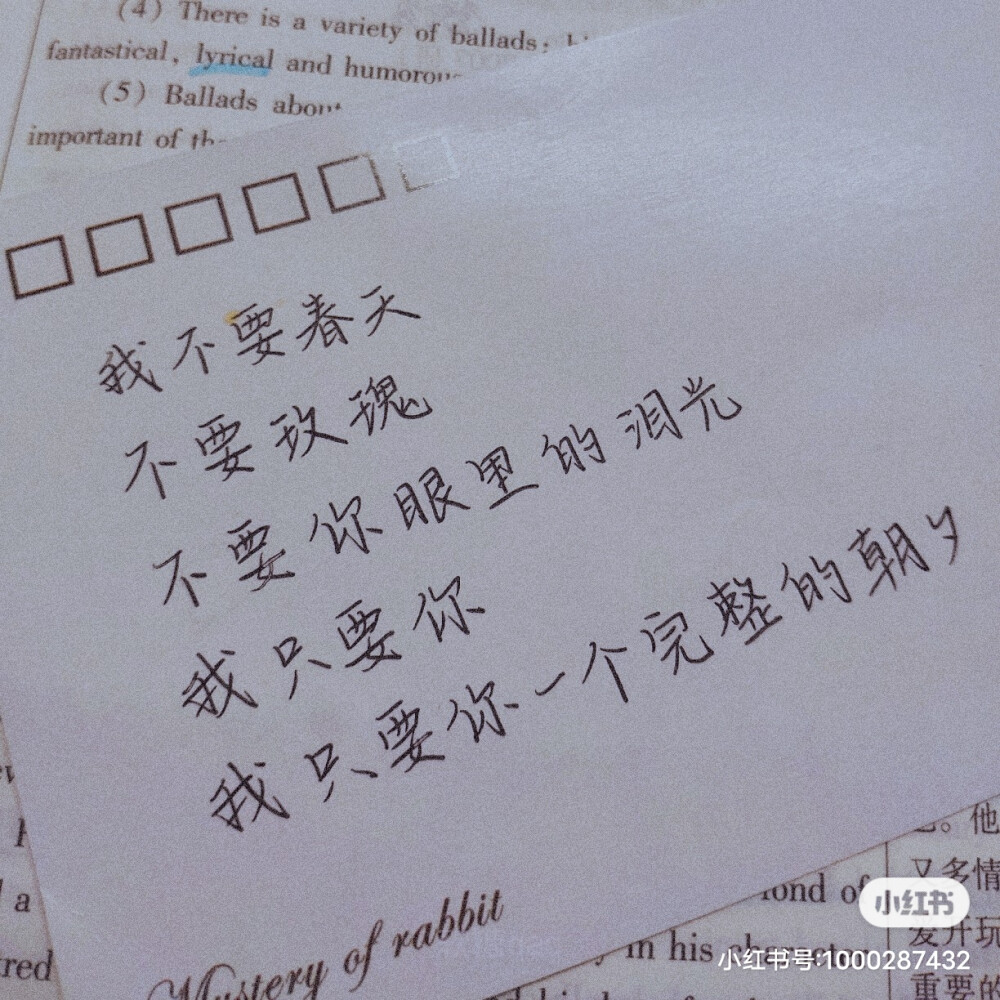 (4) There is a variety of ballads:
fantastical, lyrical and humorous
(5) Ballads about
important of
我不要春天
不要玫瑰
不要你眼里的泪光
我只要你
我只要你一个完整的朝夕
Mystery of rabbit
a
fond of
in his character
。他
又多情
爱开玩
重要的
小红书
小红书号:1000287432